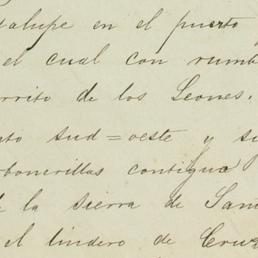 dalupe en el puerto
el cual con rumb
rrito de los Leones.
to sud=oeste y si
bonerillas contigua
la sierra de San
el lindero de Cruz